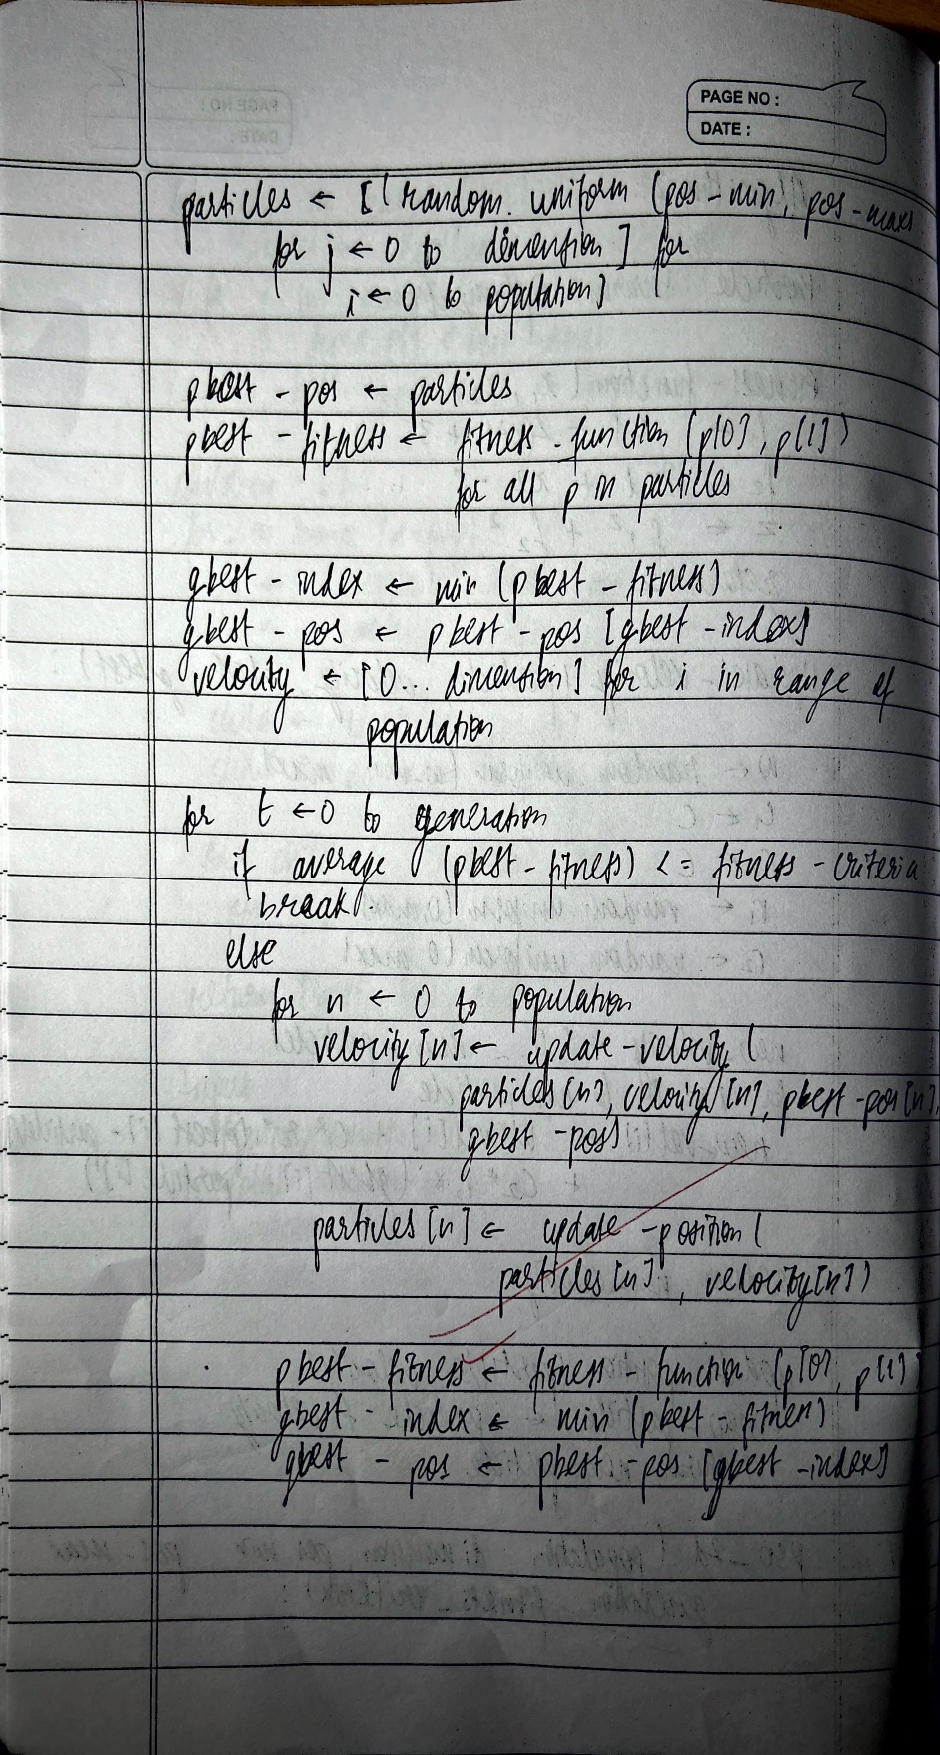 PAGE NO :
DATE :
particles ← [( random. uniform (pos-min, pos-max
for j ← 0 to dimention ] for
i ← 0 to population]
pbest - pos ← particles
pbest - fitness ← fitness - function (p[0], p[1])
for all p in particles
gbest - index ← min (pbest - fitness)
gbest - pos ← pbest - pos [gbest - index]
velocity ← [0... dimention] for i in range of
population
for t ← 0 to generation
if average (pbest - fitness) <= fitness - criteria
break
else
for n ← 0 to population
velocity[n] ← update - velocity (
particles[n], velocity[n], pbest - pos[n],
gbest - pos)
particles[n] ← update - position (
particles[n], velocity[n])
pbest - fitness ← fitness - function (p[0], p[1]
gbest - index ← min (pbest - fitness)
gbest - pos ← pbest - pos [gbest - index]